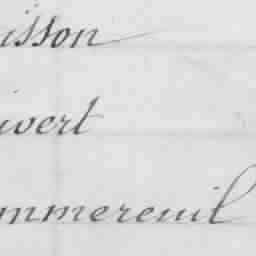 isson
ivert
mmereuil